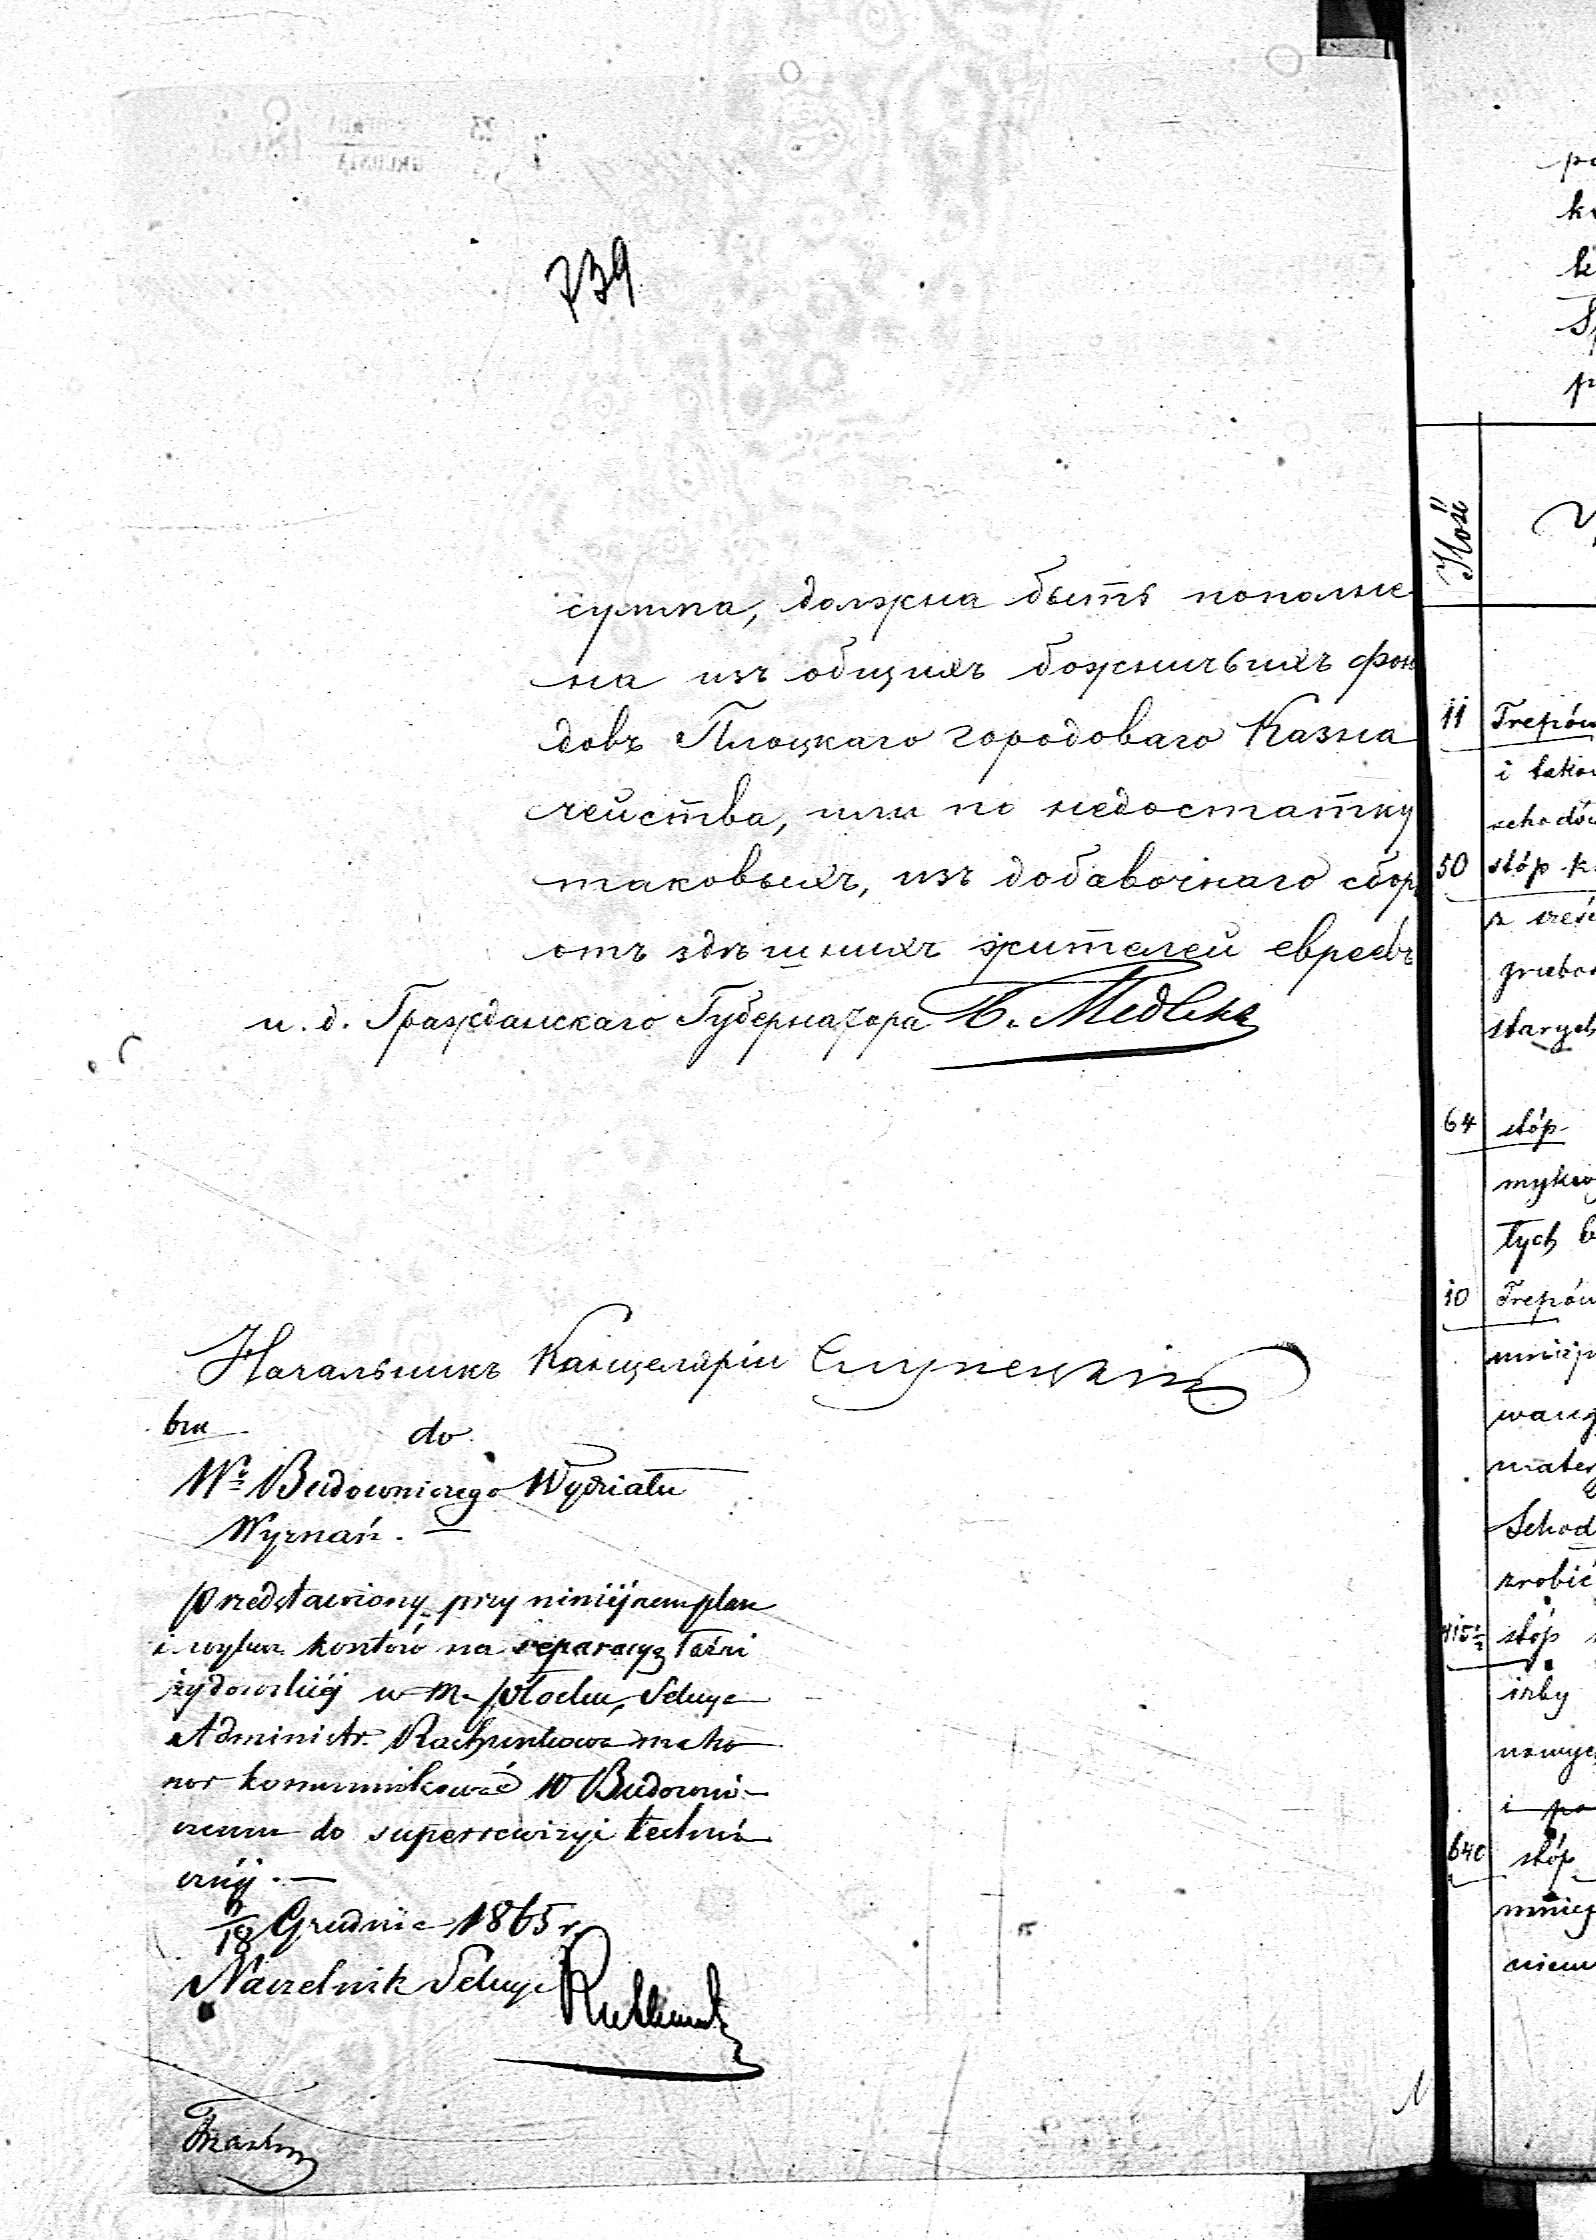 739
сумма, должна быть пополне
на изъ общихъ божничьихъ фон
довъ Плоцкаго городоваго Казна
чейства, или по недостатку
таковыхъ, изъ добавочнаго сбор
отъ здѣшнихъ жителей евреевъ
и. д. Гражданскаго Губернатора
Начальникъ Канцеляріи
do
Wº Budowniczego Wydziału
Wyznań. —
przedstawiony przy niniejszem plan
i wykaz kosztów na reparacyą łaźni
żydowskiéj w m. Płocku, Sekcya
Administr. Rachunkowa ma ho
nor kommunikować W Budowni-
czemu do superrewizyi techni
cznéj. —
6/18 Grudnia 1865 r.
Naczelnik Sekcyi
Ilość
11 Trepów
i
schodów
50 stóp
z
starych
64 stóp
tych
10 Trepów
zrobić
stóp
izby
i po
640 stóp